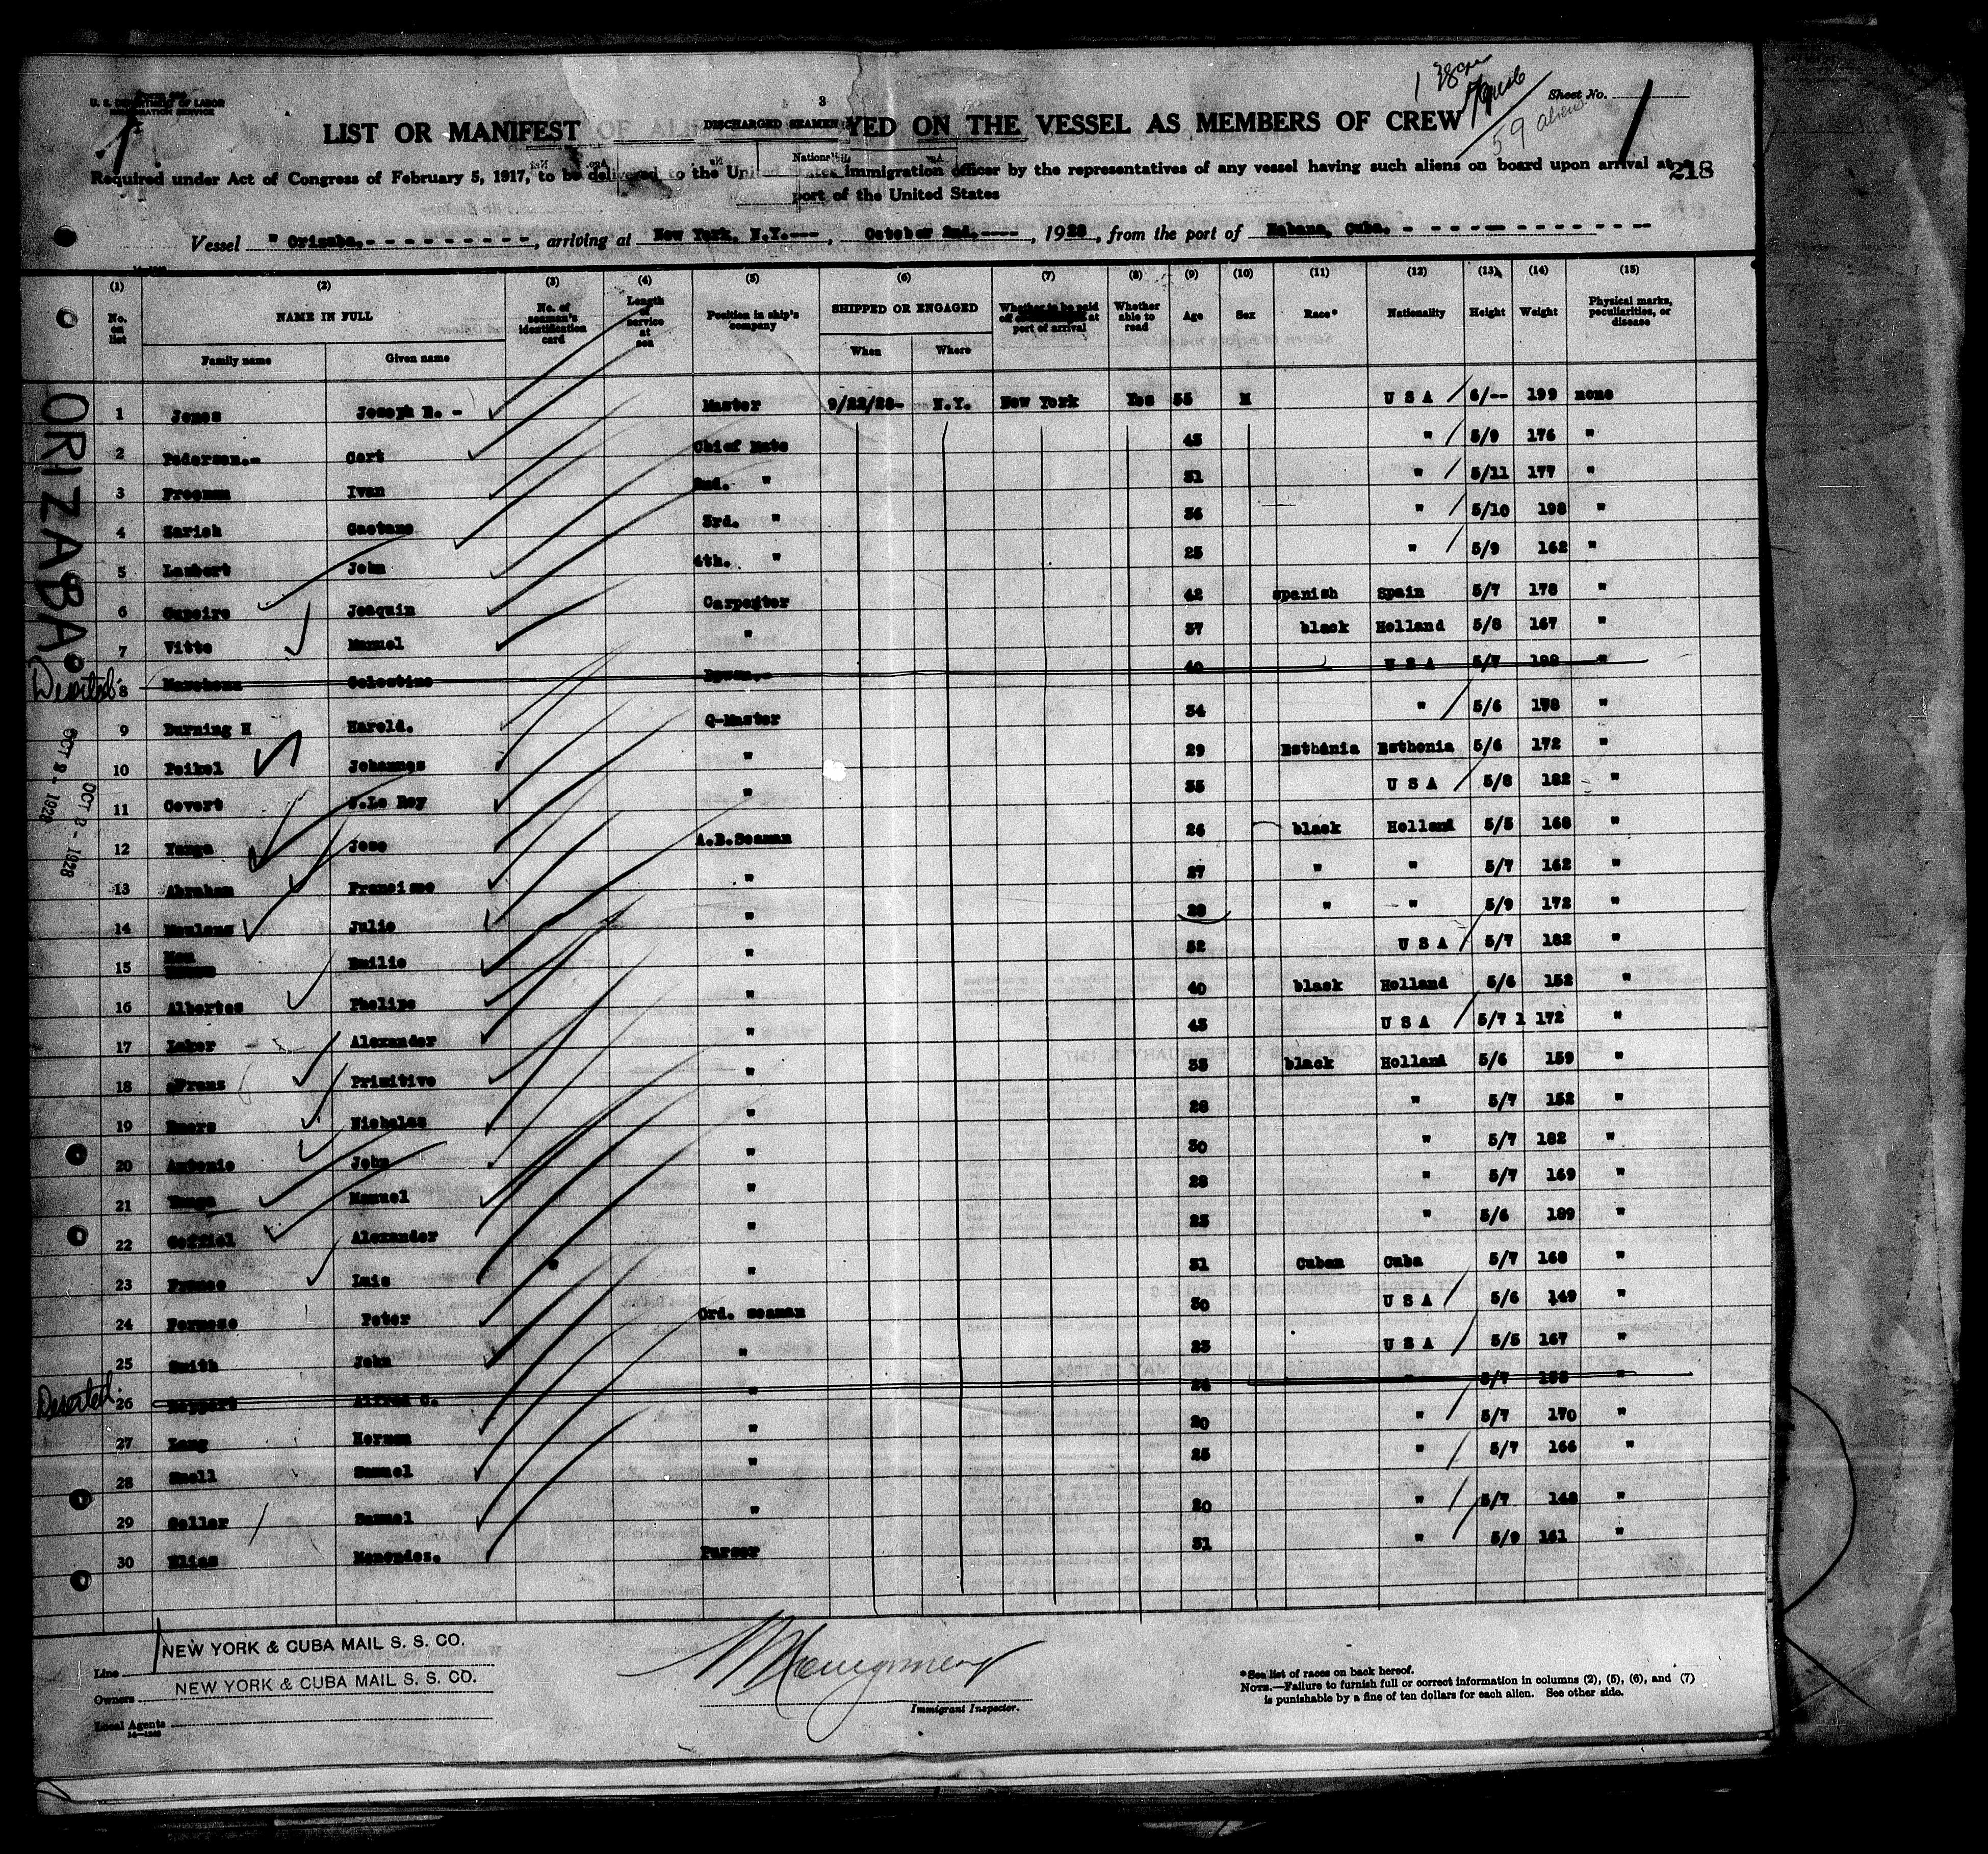 U. S. DEPARTMENT OF LABOR
IMMIGRATION SERVICE
Sheet No. 1
59 aliens
3
DISCHARGED SEAMEN
LIST OR MANIFEST OF ALIENS YED ON THE VESSEL AS MEMBERS OF CREW
Required under Act of Congress of February 5, 1917, to be delivered to the United States immigration officer by the representatives of any vessel having such aliens on board upon arrival at a
218
port of the United States
Vessel " Orizaba, arriving at New York, N.Y.---, October 2nd.----, 1928, from the port of Habana, Cuba.
(1) (2) (3) (4) (5) (6) (7) (8) (9) (10) (11) (12) (13) (14) (15)
No. on list NAME IN FULL No. of seaman's identification card Length of service at sea Position in ship's company SHIPPED OR ENGAGED Whether to be paid off at port of arrival Whether able to read Age Sex Race* Nationality Height Weight Physical marks, peculiarities, or disease
Family name Given name When Where
1 Jones Joseph R. - Master 9/22/28- N.Y. New York Yes 55 M U S A 6/-- 199 none
2 Pedersen.- Gert Chief Mate 43 " 5/9 176 "
3 Freeman Ivan 2nd. " 31 " 5/11 177 "
4 Zarich Gaetano 3rd. " 36 " 5/10 198 "
5 Lambert John 4th. " 25 " 5/9 162 "
6 Cupeiro Joaquin Carpenter 42 spanish Spain 5/7 178 "
7 Vitto Manuel " 37 black Holland 5/8 167 "
Deserted 8 Celestino 40 U S A 5/7 "
9 Durning H Harold. Q-Master 34 " 5/6 "
10 Peikel Johannes " 29 Esthania Esthonia 5/6 172 "
11 Covert J.Le Roy " 35 U S A 5/8 182 "
12 Yanga Jose A.B.Seaman 26 black Holland 5/5 168 "
13 Abraham Francisco " 27 " " 5/7 162 "
14 Julio " 28 " " 5/9 172 "
15 Emilio " 52 U S A 5/7 182 "
16 Albertos Phelipe " 40 black Holland 5/6 152 "
17 Laker Alexander " 43 U S A 5/7 1 172 "
18 Frans Primitivo " 33 black Holland 5/6 159 "
19 Nicholas " 28 " 5/7 152 "
20 Antonio John " 30 " 5/7 182 "
21 Manuel " 28 " 5/7 169 "
22 Goffiel Alexander " 23 " 5/6 189 "
23 Luis " 31 Cuban Cuba 5/7 168 "
24 Peter Ord. seaman 30 U S A 5/6 149 "
25 Smith John " 23 U S A 5/5 167 "
Deserted. 26 Alfred C. " " 5/7 "
27 Lang Herman " 20 " 5/7 170 "
28 Snell Samuel " 25 " 5/7 166 "
29 Geller Samuel " 20 " 5/7 148 "
30 Elias Menendez. Purser 31 " 5/9 161 "
ORIZABA
OCT 2 - 1928
OCT 2 - 1928
Line NEW YORK & CUBA MAIL S. S. CO.
Owners NEW YORK & CUBA MAIL S. S. CO.
Local Agents
Immigrant Inspector.
*See list of races on back hereof.
NOTE.—Failure to furnish full or correct information in columns (2), (5), (6), and (7)
is punishable by a fine of ten dollars for each alien. See other side.